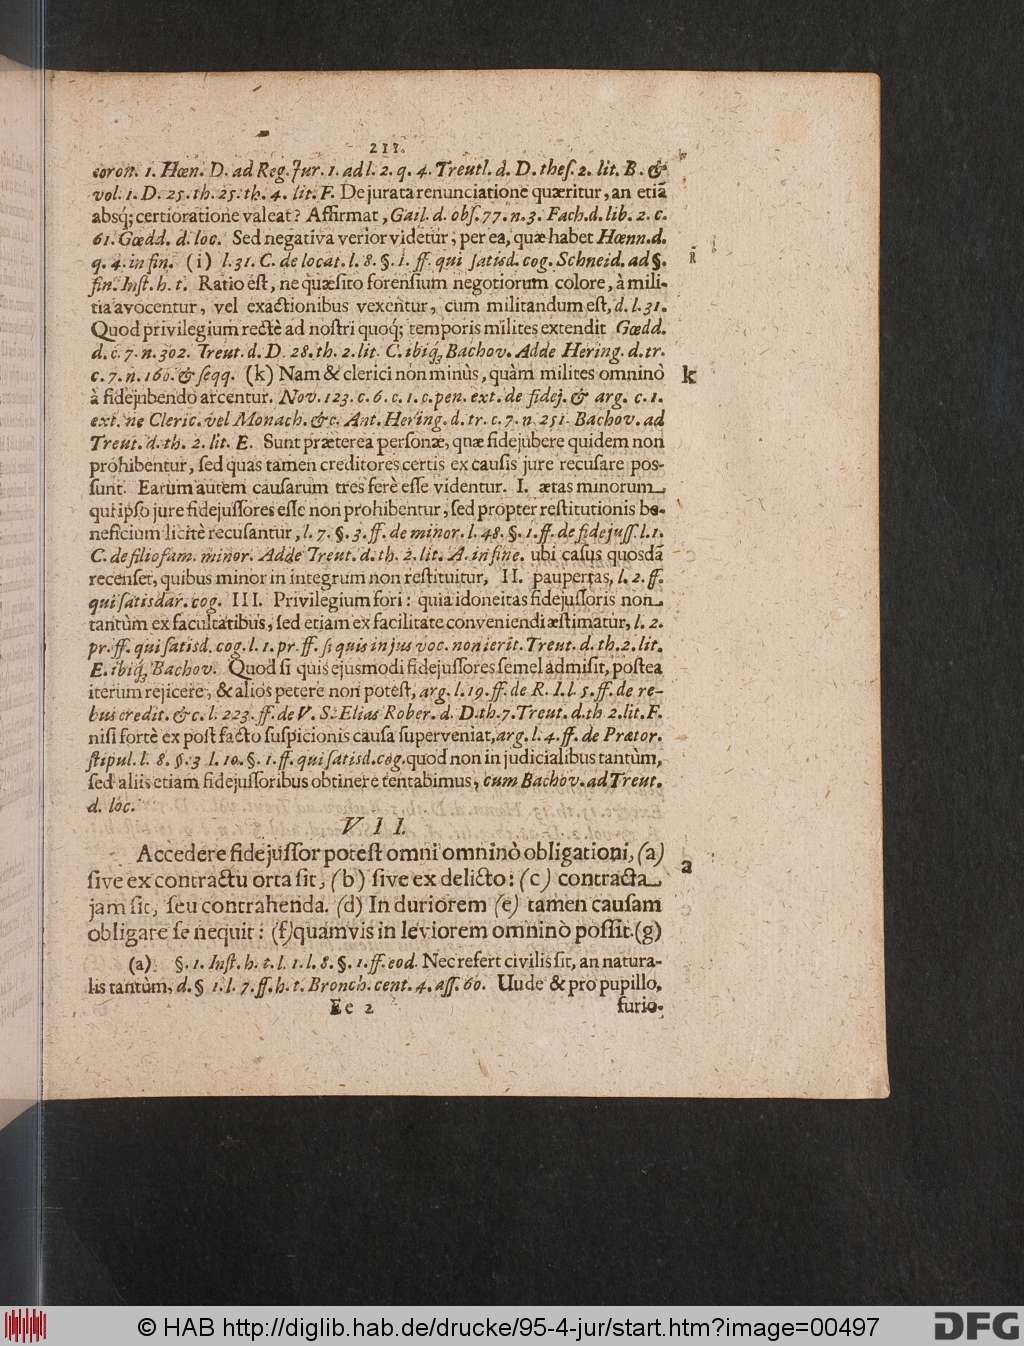 211.
coron. 1. Hœn. D. ad Reg. Jur. 1. ad l. 2. q. 4. Treutl. d. D. theſ. 2. lit. B. &
vol. 1. D. 25. th. 25. th. 4. lit. F. De jurata renunciatione quæritur, an etiã
absq́; certioratione valeat? Affirmat, Gail. d. obſ. 77. n. 3. Fach. d. lib. 2. c.
61. Gœdd. d. loc. Sed negativa verior videtur, per ea, quæ habet Hœnn. d.
q. 4. in fin. (i) l. 31. C. de locat. l. 8. §. 1. ff. qui ſatisd. cog. Schneid. ad §.
fin. Inſt. h. t. Ratio eſt, ne quæſito forenſium negotiorum colore, à mili-
tia avocentur, vel exactionibus vexentur, cum militandum eſt, d. l. 31.
Quod privilegium rectè ad noſtri quoq́; temporis milites extendit Gœdd.
d. c. 7. n. 302. Treut. d. D. 28. th. 2. lit. C. ibiq́; Bachov. Adde Hering. d. tr.
c. 7. n. 160. & ſeqq. (k) Nam & clerici non minùs, quàm milites omninò
à fidejubendo arcentur. Nov. 123. c. 6. c. 1. c. pen. ext. de fidej. & arg. c. 1.
ext. ne Cleric. vel Monach. &c. Ant. Hering. d. tr. c. 7. n. 251. Bachov. ad
Treut. d. th. 2. lit. E. Sunt præterea perſonæ, quæ fidejubere quidem non
prohibentur, ſed quas tamen creditores certis ex cauſis jure recuſare poſ-
ſunt. Earum autem cauſarum tres ferè eſſe videntur. I. ætas minorum
qui ipſo jure fidejuſſores eſſe non prohibentur, ſed propter reſtitutionis be-
neficium licitè recuſantur, l. 7. §. 3. ff. de minor. l. 48. §. 1. ff. de fidejuſſ. l. 1.
C. de filiofam. minor. Adde Treut. d. th. 2. lit. A. in fine. ubi caſus quosdã
recenſet, quibus minor in integrum non reſtituitur, II. paupertas, l. 2. ff.
qui ſatisdar. cog. III. Privilegium fori: quia idoneitas fidejuſſoris non
tantùm ex facultatibus, ſed etiam ex facilitate conveniendi æſtimatur, l. 2.
pr. ff. qui ſatisd. cog. l. 1. pr. ff. ſi quis in jus voc. non ierit. Treut. d. th. 2. lit.
E. ibiq́; Bachov. Quod ſi quis ejusmodi fidejuſſores ſemel admiſit, poſtea
iterum rejicere, & alios petere non poteſt, arg. l. 19. ff. de R. I. l. 5. ff. de re-
bus credit. & c. l. 223. ff. de V. S. Elias Rober. d. D. th. 7. Treut. d. th 2. lit. F.
niſi fortè ex poſt facto ſuspicionis cauſa ſuperveniat, arg. l. 4. ff. de Prætor.
ſtipul. l. 8. §. 3 l. 10. §. 1. ff. qui ſatisd. cog. quod non in judicialibus tantùm,
ſed aliis etiam fidejuſſoribus obtinere tentabimus, cum Bachov. ad Treut.
d. loc.
VII.
Accedere fidejuſſor poteſt omni omninò obligationi, (a)
ſive ex contractu orta ſit, (b) ſive ex delicto: (c) contracta
jam ſit, ſeu contrahenda. (d) In duriorem (e) tamen cauſam
obligare ſe nequit: (f) quamvis in leviorem omninò poſſit. (g)
(a) §. 1. Inſt. h. t. l. 1. l. 8. §. 1. ff. eod. Nec refert civilis ſit, an natura-
lis tantùm, d. § 1. l. 7. ff. h. t. Bronch. cent. 4. aſſ. 60. Uude & pro pupillo,
Ee 2 furio-
i
k
a
© HAB http://diglib.hab.de/drucke/95-4-jur/start.htm?image=00497
DFG